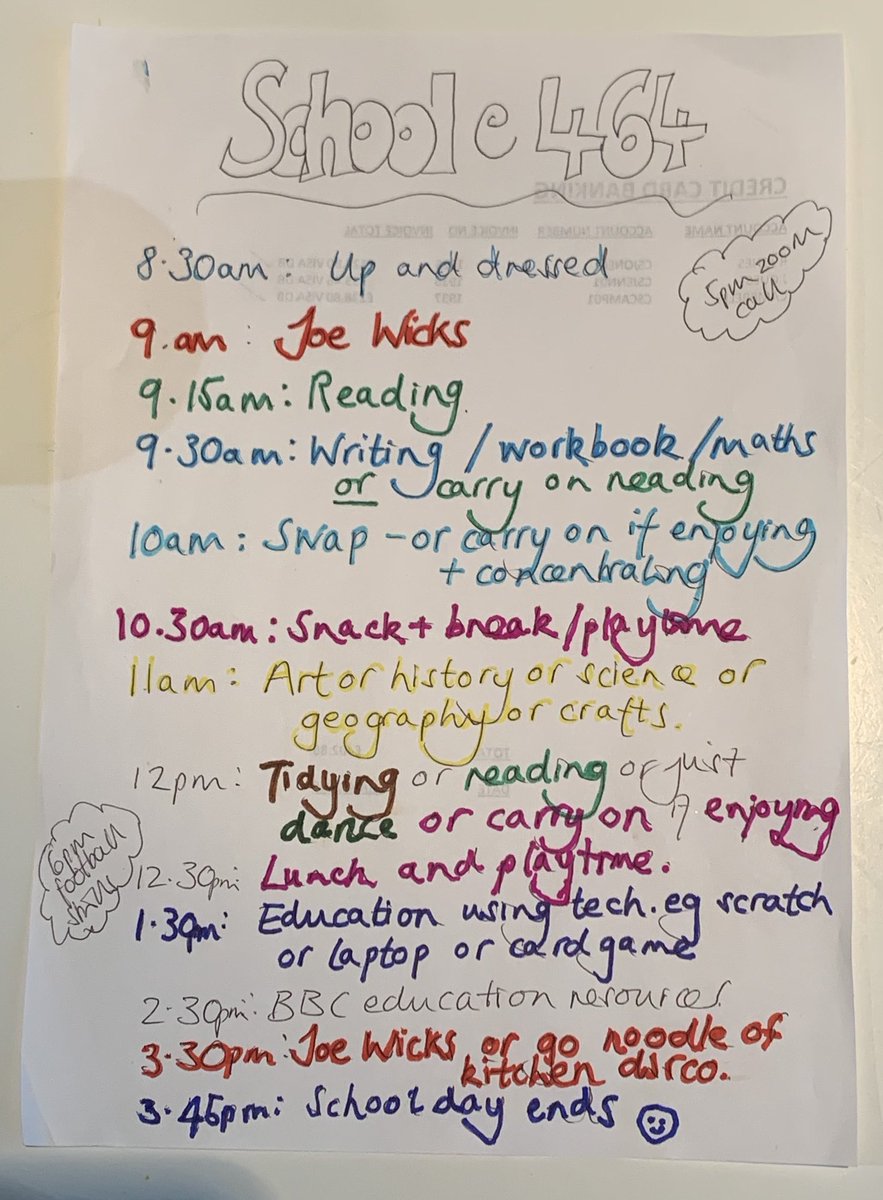 School e 464
CREDIT CARD BANKING
ACCOUNT NAME ACCOUNT NUMBER INVOICE NO INVOICE TOTAL
8.30am: Up and dressed
5pm zoom
call
CSJENN01
CSCAMP01 1937
9.am: Joe Wicks
9.15am: Reading
9.30am: Writing / workbook / maths
or carry on reading
10am: Swap - or carry on if enjoying
+ concentrating
10.30am: Snack + break / playtime
11am: Art or history or science or
geography or crafts.
12pm: Tidying or reading or just
dance or carry on if enjoying
6pm
football
skills
12.30pm: Lunch and playtime.
1.30pm: Education using tech. eg scratch
or laptop or card game
2.30pm: BBC education resources
3.30pm: Joe Wicks or go noodle of
kitchen disco.
3.45pm: School day ends